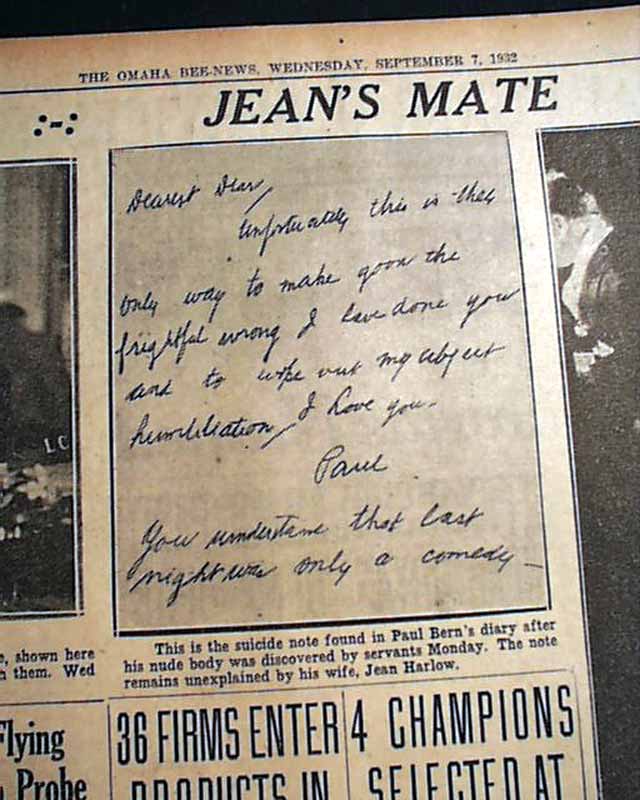 THE OMAHA BEE-NEWS, WEDNESDAY, SEPTEMBER 7, 1932
:-:
JEAN'S MATE
Dearest Dear,
Unfortuately this is the
only way to make good the
frightful wrong I have done you
and to wipe out my abject
humiliation, I love you.
Paul
You understand that last
night was only a comedy—
LC
This is the suicide note found in Paul Bern's diary after
his nude body was discovered by servants Monday. The note
remains unexplained by his wife, Jean Harlow.
e, shown here
h them. Wed
Flying
Probe
36 FIRMS ENTER
PRODUCTS IN
4 CHAMPIONS
SELECTED AT